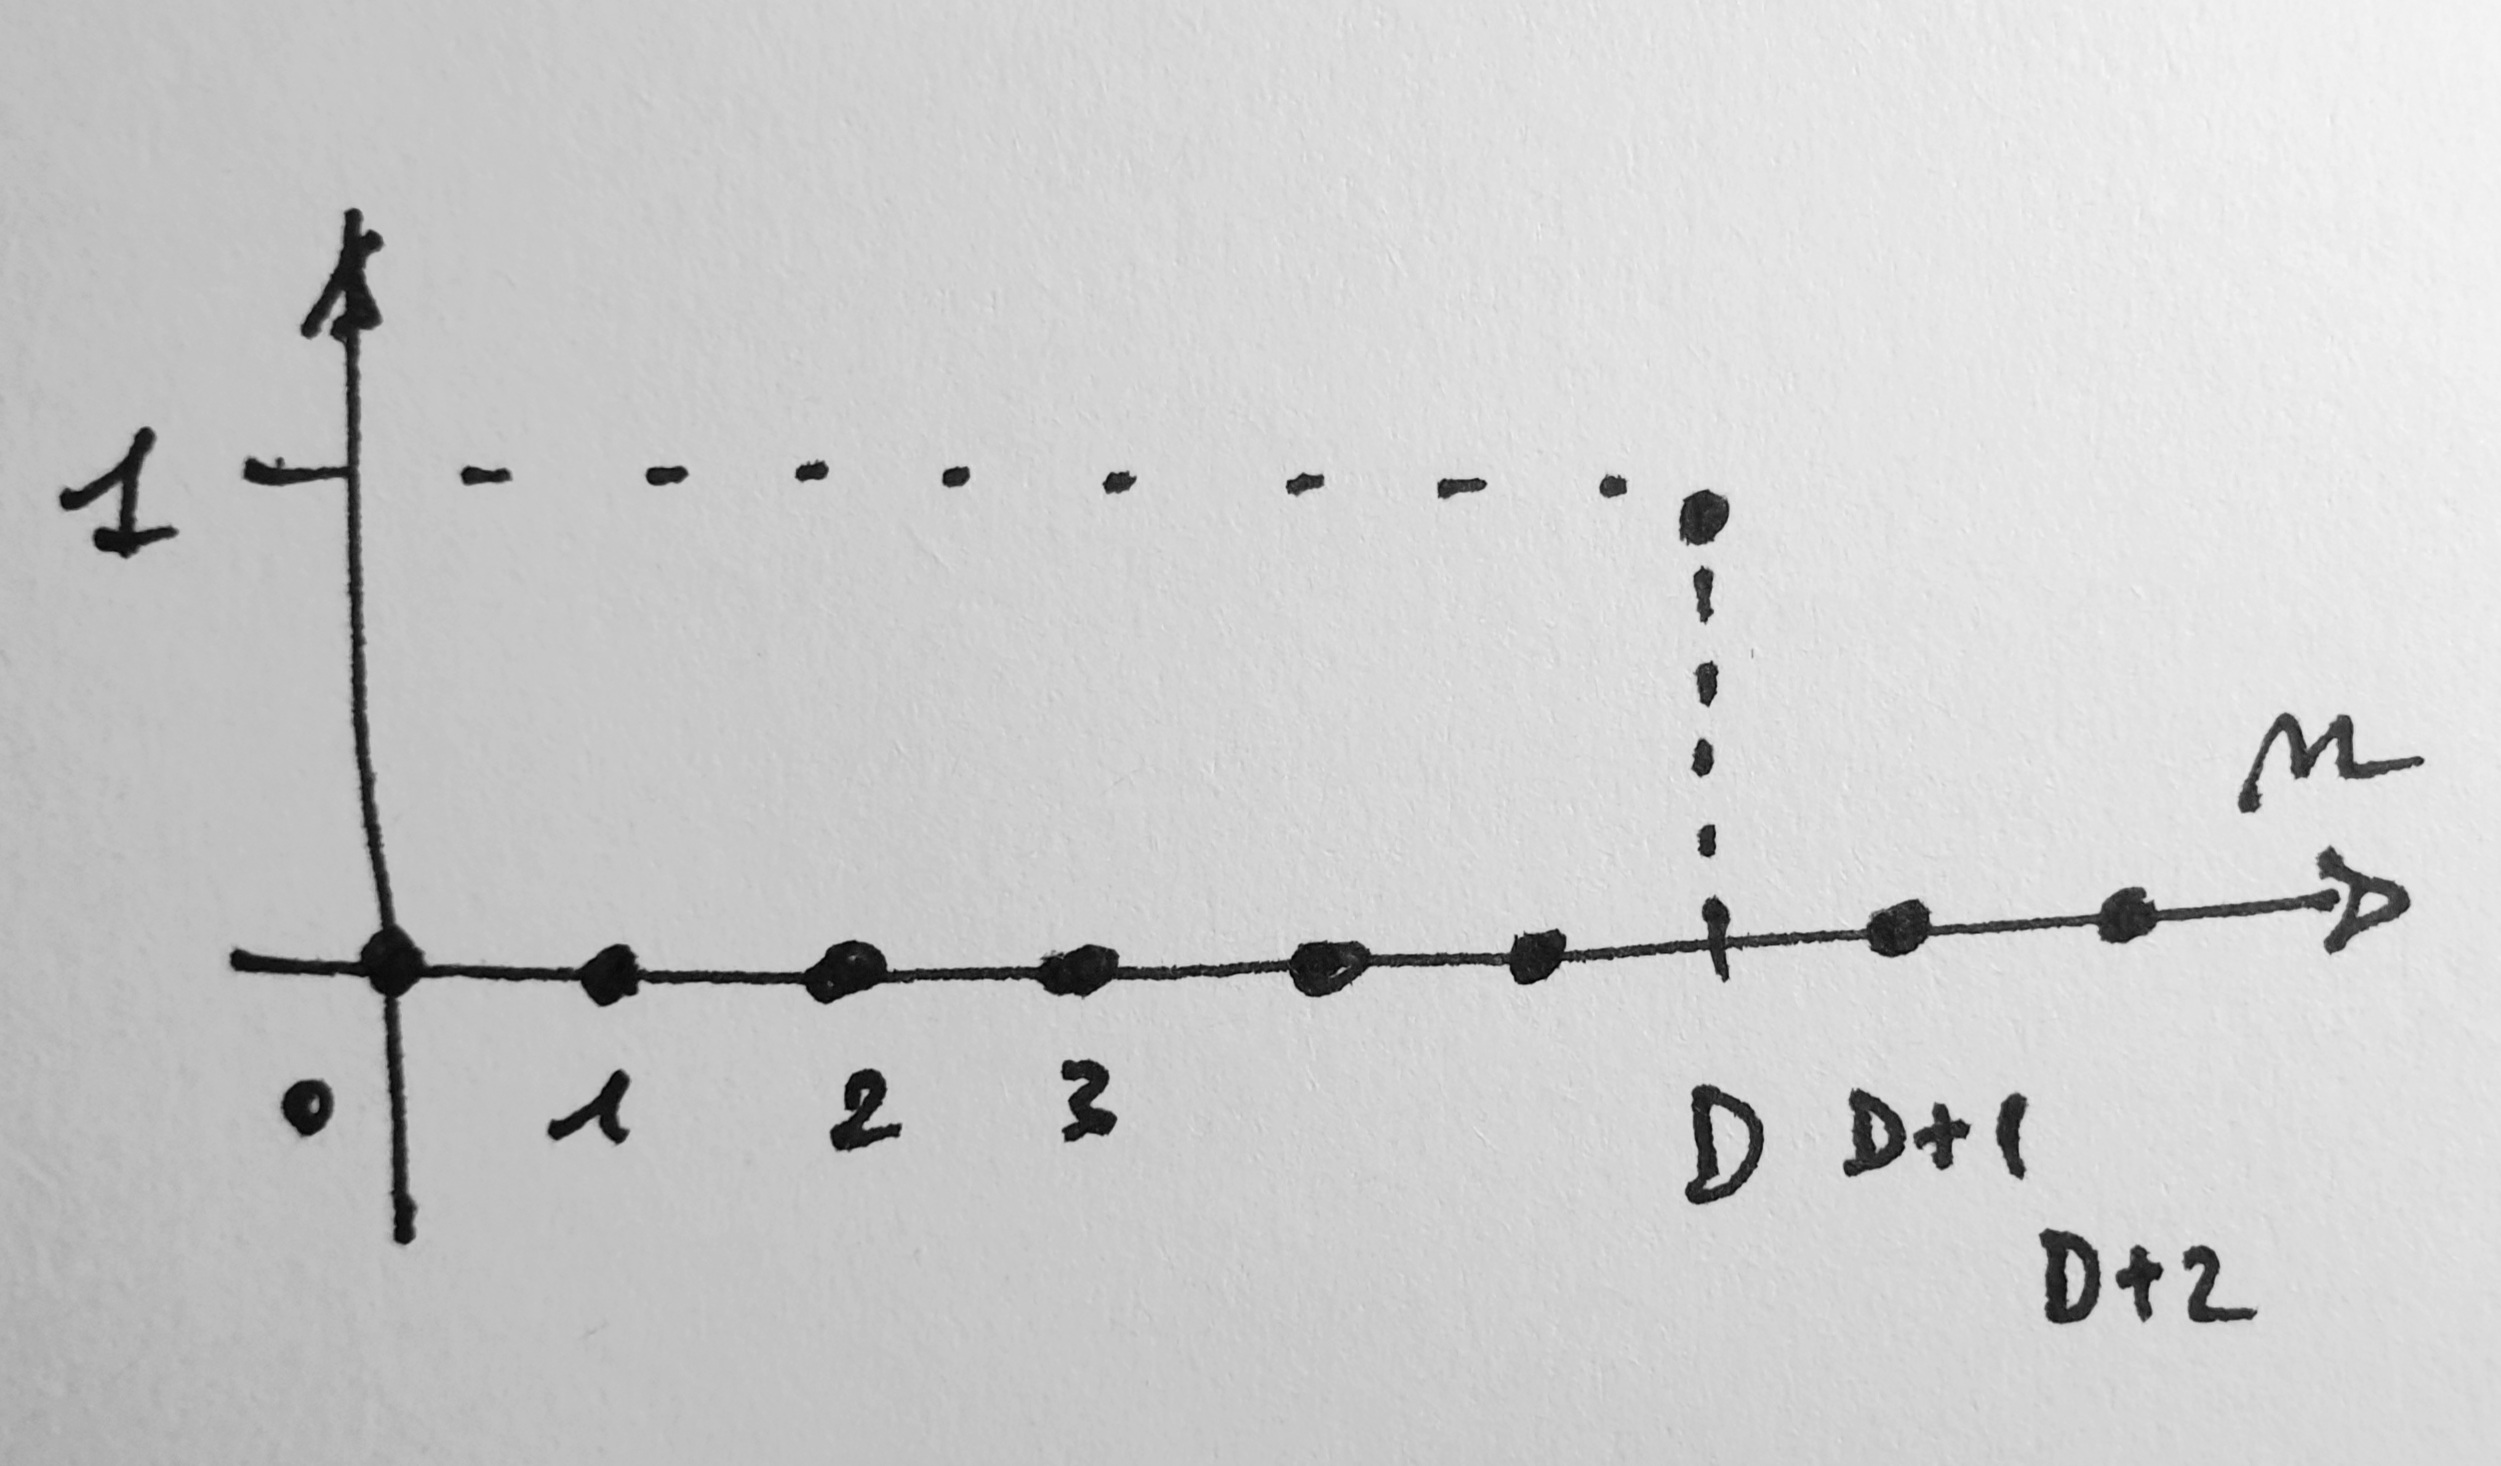 1
n
0 1 2 3 D D+1
D+2